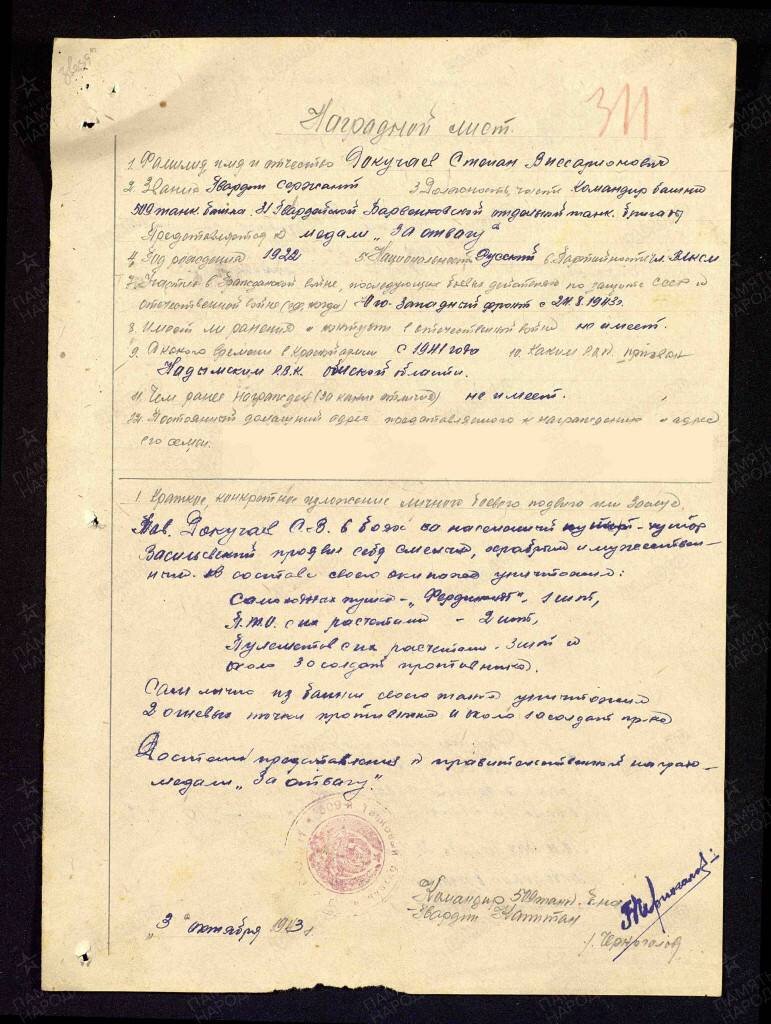 311
Наградной лист.
1. Фамилия имя и отчество Докучаев Степан Виссарионович
2. Звание Гвардии сержант 3. Должность, часть Командир башни
509 танк. бат-на 31 Гвардейской Барвенковской отдельной танк. бригады
Представляется к медали „За отвагу"
4. Год рождения 1922 5. Национальность Русский 6. Партийность чл. ВЛКСМ
7. Участие в Гражданской войне, последующих боевых действиях по защите СССР и
отечественной войне (где, когда) Юго-Западный фронт с 24.8.1943г.
8. Имеет ли ранения и контузии в отечественной войне не имеет.
9. С какого времени в Красной армии с 1941 года 10. Каким РВК призван
Надымским Р.В.К. Омской области.
11. Чем ранее награжден (за какие отличия) не имеет.
12. Постоянный домашний адрес представляемого к награждению и адрес
его семьи.
1. Краткое, конкретное изложение личного боевого подвига или заслуг.
Тов. Докучаев С.В. в боях за населенный пункт - хутор
Васильевский проявил себя смелым, храбрым и мужествен-
ным. В составе своего экипажа уничтожил:
Самоходных пушек - „Фердинант" - 1 шт,
П.Т.О. с их расчетами - 2 шт,
Пулеметов с их расчетами - 3 шт и
около 30 солдат противника.
Сам лично из башни своего танка уничтожил
2 огневые точки противника и около 10 солдат пр-ка
Достоин представления к правительственной награде -
медали „За отвагу".
Командир танк. б-на
Гвардии Капитан
„3" октября 1943 г.
/. Черноголов